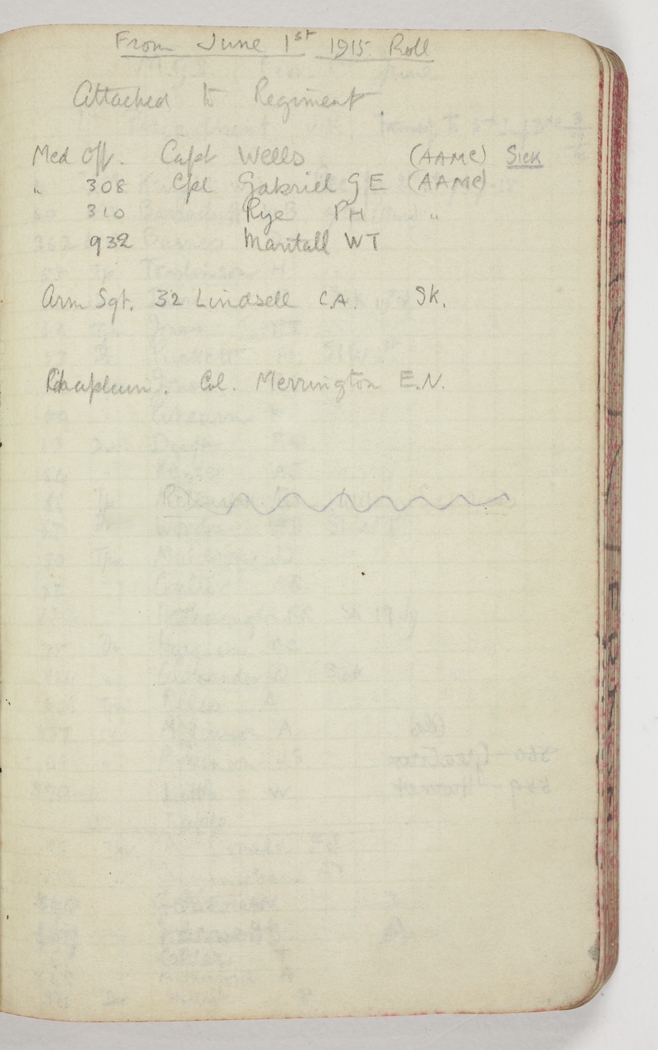 From June 1st 1915 Roll
Attached to Regiment
Med Off. Capt Wells (AAMC) Sick
" 308 Cpl Gabriel G E (AAMC)
310 Rye PH "
932 Mantall WT
Arm Sgt. 32 Lindsell C.A. Sk.
Chaplain. Col. Merrington E.N.